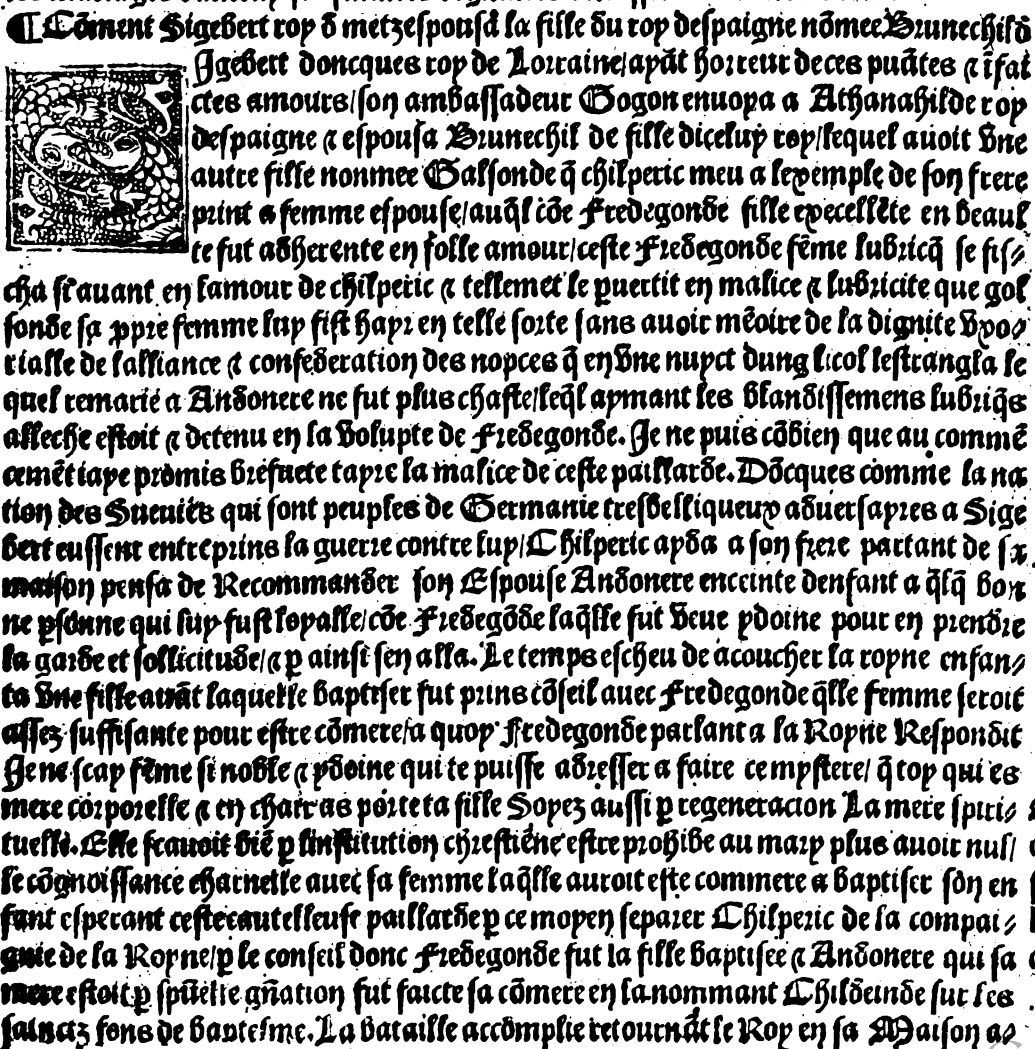 ¶ Cõment Sigebert roy d̃ metz espousa la fille du roy despaigne nõmee Brunechild
SIgebert doncques roy de Lorraine/ayãt horreur de ces puãtes ⁊ ĩfai
ctes amours/son ambassadeur Gogon enuoya a Athanahilde roy
despaigne ⁊ espousa Brunechil de fille diceluy roy/lequel auoit vne
autre fille nonmee Galsonde q̃ chilperic meu a lexemple de son frere
print a femme espouse/auq̃l cõe Fredegonde fille excellẽte en beaul
te fut adherente en folle amour/ceste Fredegonde fẽme lubricq̃ se fis⸗
cha si auant en lamour de chilperic ⁊ tellemẽt le ꝑuertit en malice ⁊ lubricite que gol
sonde sa ꝓpre femme luy fist hayr en telle sorte sans auoir mẽoire de la dignite vxo⸗
rialle de lalliance ⁊ confederation des nopces q̃ en vne nuyct dung licol lestrangla le
quel remarié a Andonere ne fut plus chaste/leq̃l aymant les blandissemens lubriq̃s
alleche estoit ⁊ detenu en la volupte de Fredegonde. Je ne puis cõbien que au commẽ
cemẽt iaye promis brefuete tayre la malice de ceste paillarde. Dõcques comme la na
tion des Sueuiẽs qui sont peuples de Germanie tresbelliqueux aduersayres a Sige
bert eussent entreprins la guerre contre luy/Chilperic ayda a son frere partant de sa
maison pensa de Recommander son Espouse Andonere enceinte denfant a q̃lq̃ bon
ne ꝑsonne qui luy fust loyalle/cõe Fredegõde laq̃lle fut veue ydoine pour en prendre
la garde et sollicitude/⁊ ꝑ ainsi sen alla. Le temps escheu de acoucher la royne enfan⸗
ta vne fille auãt laquelle baptiser fut prins cõseil auec Fredegonde q̃lle femme seroit
assez suffisante pour estre cõmere/a quoy Fredegonde parlant a la Royne Respondit
Je ne scay fẽme si noble ⁊ ydoine qui te puisse adresser a faire ce mystere/ q̃ toy qui es
mere corporelle ⁊ en chair as porte ta fille Soyez aussi ꝑ regeneracion La mere spiri⸗
tuelle. Elle scauoit biẽ ꝑ linstitution chrestiẽne estre prohibe au mary plus auoir nul/
le cõgnoissance charnelle auec sa femme laq̃lle auroit este commere a baptiser son en
fant esperant ceste cautelleuse paillarde ꝑ ce moyen separer Chilperic de la compai⸗
gnie de la Royne/ꝑ le conseil donc Fredegonde fut la fille baptisee ⁊ Andonere qui sa
mere estoit ꝑ spũelle gñation fut faicte sa cõmere en la nommant Childeinde sur les
sainctz fons de baptesme. La bataille accomplie retournãt le Roy en sa Maison a⸗